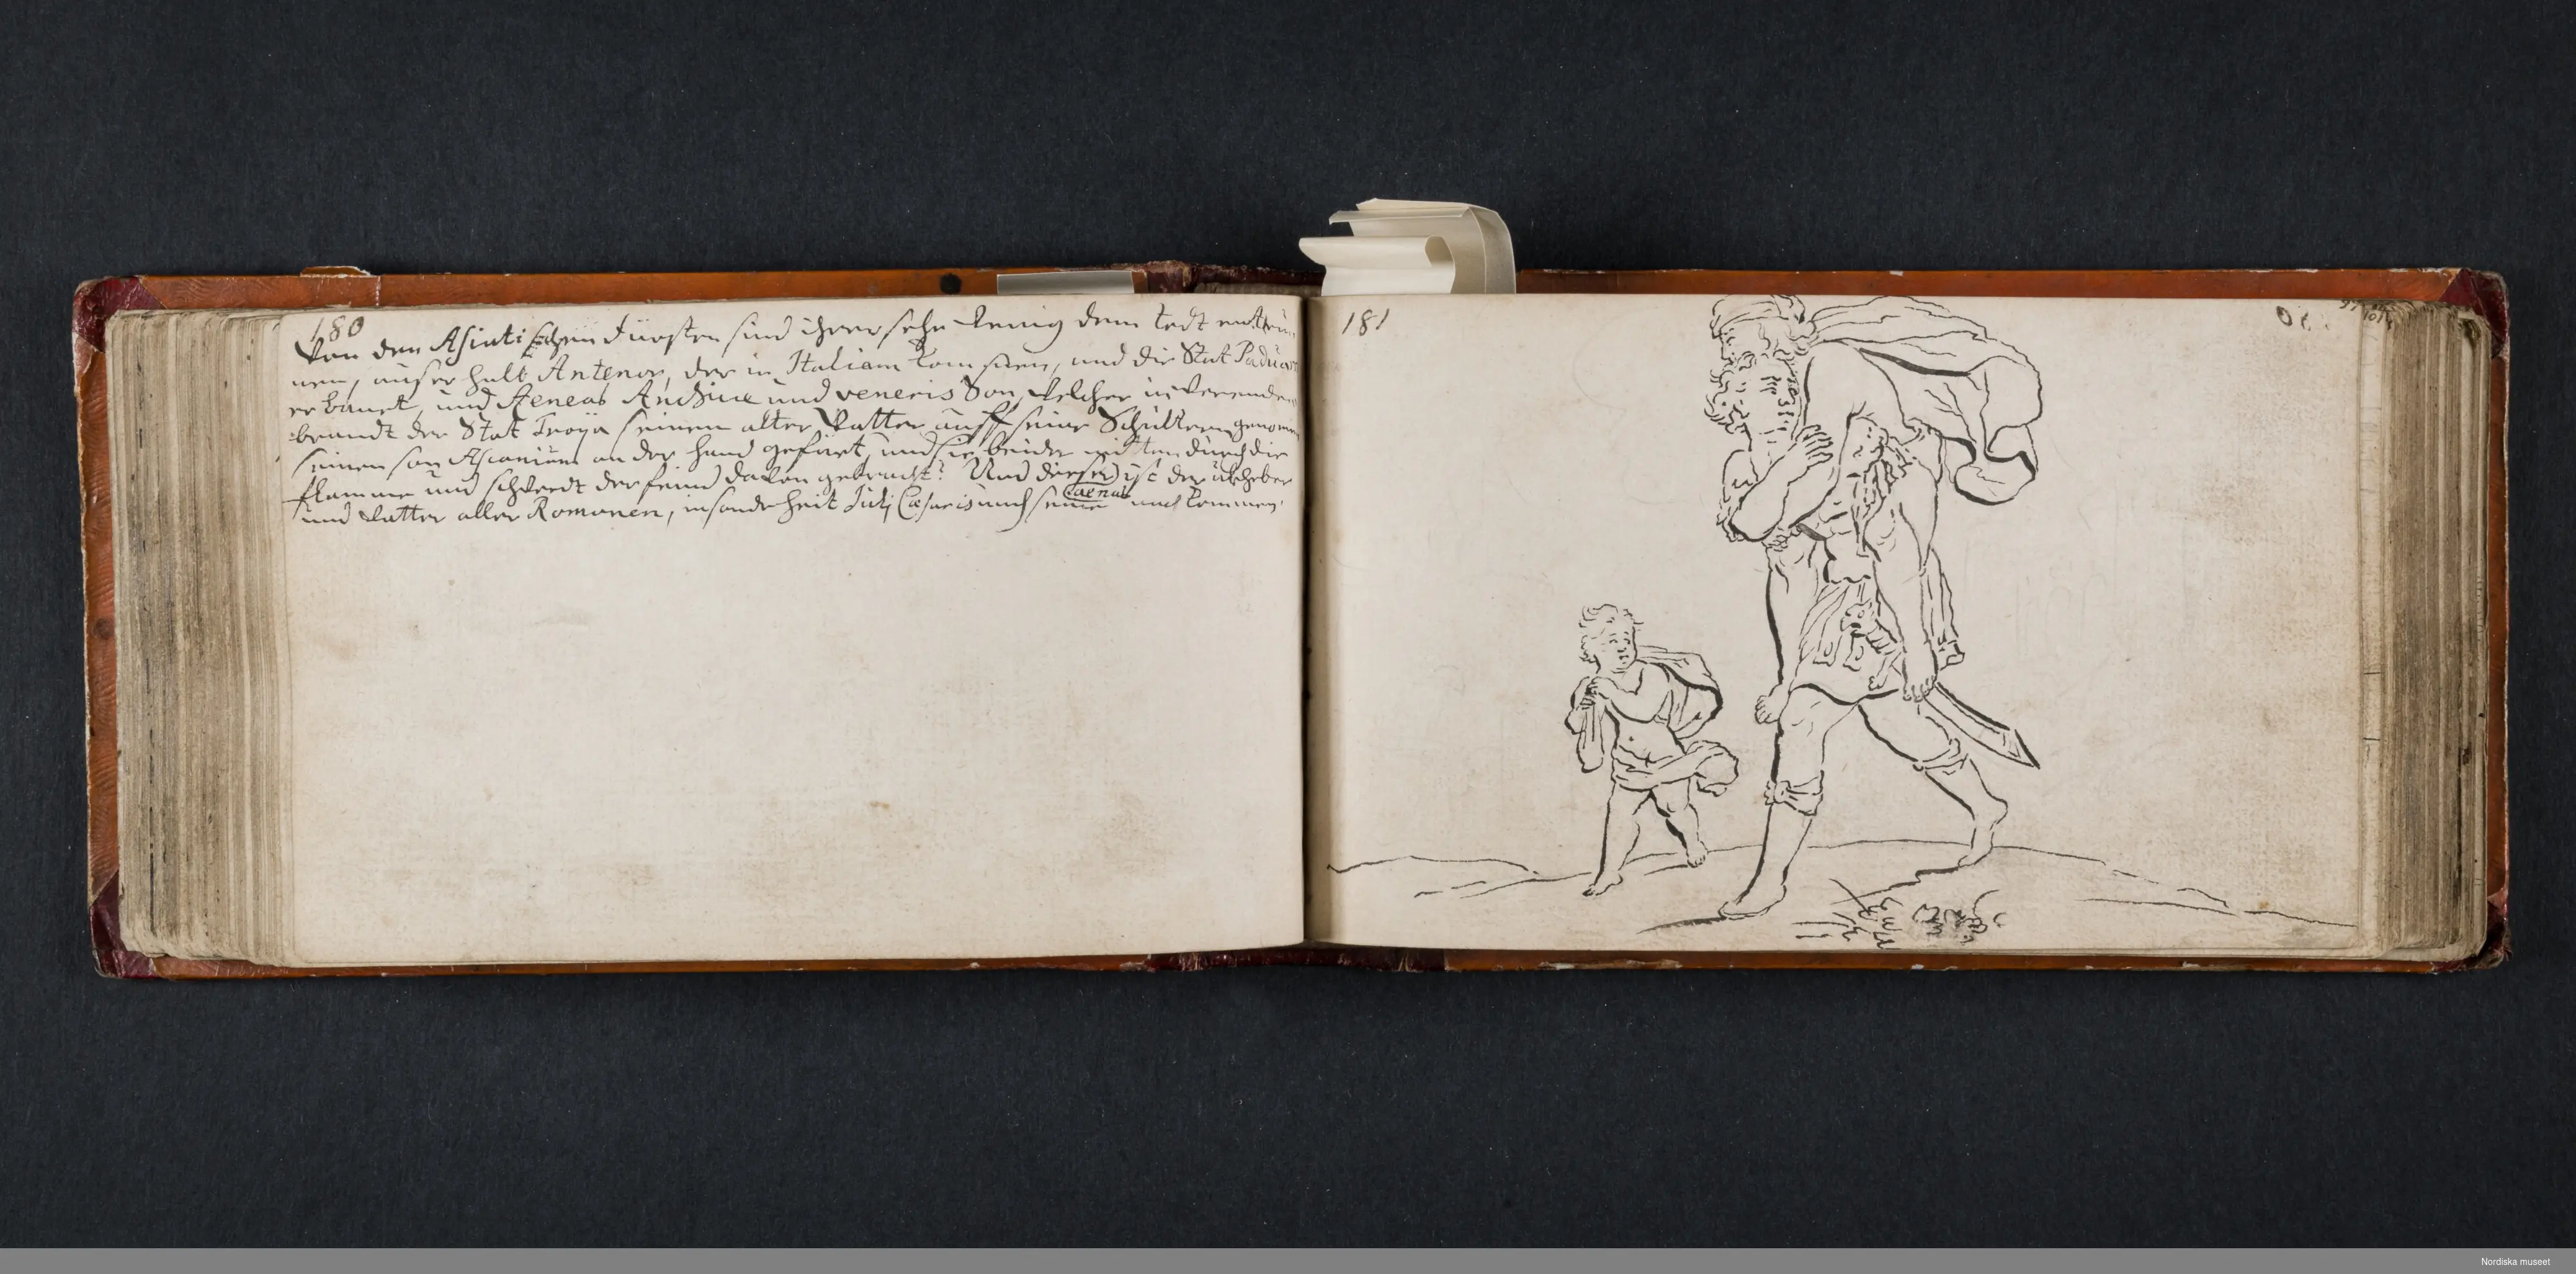 180
Von den Asiatischen Fürsten sind ihrer sehr wenig dem todt entrun
nen, auser halb Antenor, der in Italiam kommen, und die Stat Padua
erbauet, und Aeneas Anchisae und veneris Son, welcher in werenden
brandt der Stat Troya seinen alten Vatter auff seine Schultern genomen
seinen son Ascanium an der hand gefürt, und sie beide mitten durch die
flamme und schwerdt der feind davon gebracht. Und dieser ist der uhrheber
Aeneas
und Vatter aller Romanen, insonderheit Julij Caesaris und seine nachkommen.
181
Nordiska museet